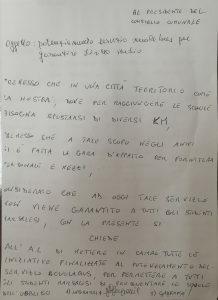 AL PRESIDENTE DEL
CONSIGLIO COMUNALE
Oggetto: potenziamento servizio scuola bus per
garantire diritto studio
PREMESSO CHE IN UNA CITTÀ TERRITORIO COME
LA NOSTRA, DOVE PER RAGGIUNGERE LE SCUOLE
BISOGNA SPOSTARSI DI DIVERSI KM,
PREMESSO CHE A TALE SCOPO NEGLI ANNI
SI È FATTA LA GARA D'APPALTO PER FORNITURA
PERSONALE E MEZZI,
CONSIDERATO CHE AD OGGI TALE SERVIZIO
NON VIENE GARANTITO A TUTTI GLI STUDENTI
CON LA PRESENTE SI
CHIEDE
ALL'A.C. DI METTERE IN CAMPO TUTTE LE
INIZIATIVE FINALIZZATE AL POTENZIAMENTO DEL
SERVIZIO SCUOLABUS, PER PERMETTERE A TUTTI
GLI STUDENTI DI FREQUENTARE LE SCUOLE
DELL'OBBLIGO